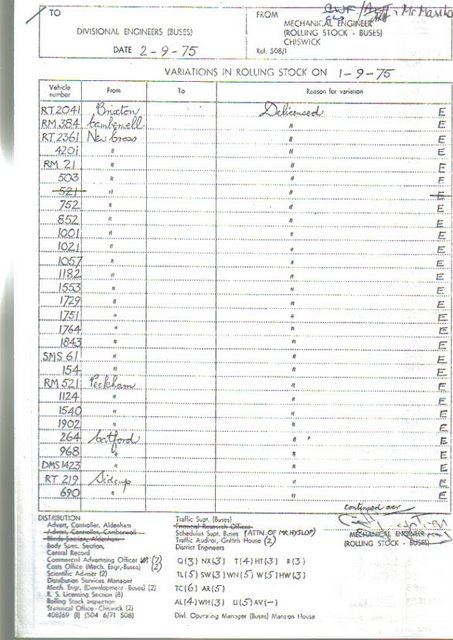 TO
DIVISIONAL ENGINEERS (BUSES)
DATE 2-9-75
FROM
Mr
MECHANICAL ENGINEER
(ROLLING STOCK - BUSES)
CHISWICK
Ref. 508/1
VARIATIONS IN ROLLING STOCK ON 1-9-75
Vehicle number From To Reason for variation
RT 2041 Brixton Delicensed E
RM 384 Camberwell " E
RT 2361 New Cross " E
4201 " " E
RM 21 " " E
503 " " E
521 " " E
752 " " E
852 " " E
1001 " " E
1021 " " E
1057 " " E
1182 " " E
1553 " " E
1729 " " E
1751 " " E
1764 " " E
1843 " " E
SMS 61 " " E
154 " " E
RM 521 Peckham " E
1124 " " E
1540 " " E
1902 " " E
264 Catford " E
968 " " E
DMS 1423 " " E
RT 219 Sidcup " E
690 " " E
continued over
MECHANICAL ENGINEER
(ROLLING STOCK - BUSES)
DISTRIBUTION
Advert. Controller, Aldenham
Advert. Controller, Camberwell
Blinds Section, Aldenham
Body Spec. Section,
Central Record
Commercial Advertising Officer (2)
Costs Office (Mech. Engr.-Buses) (2)
Scientific Adviser (2)
Distribution Services Manager
Mech. Engr. (Development - Buses) (2)
R. S. Licensing Section (8)
Rolling Stock Inspection
Statistical Office - Chiswick (2)
408/69 (I) (504 6/71 S08)
Traffic Supt. (Buses)
Financial Research Officer
Schedules Supt. Buses (ATTN. OF MR. HYSLOP)
Traffic Auditor, Griffith House (2)
District Engineers
Q(3) NX(3) T(4) HT(3) R(3)
TL(5) SW(3) WN(5) W(5) HW(3)
TC(6) AR(5)
AL(4) WH(3) U(5) AV(-)
Divl. Operating Manager (Buses) Mansion House